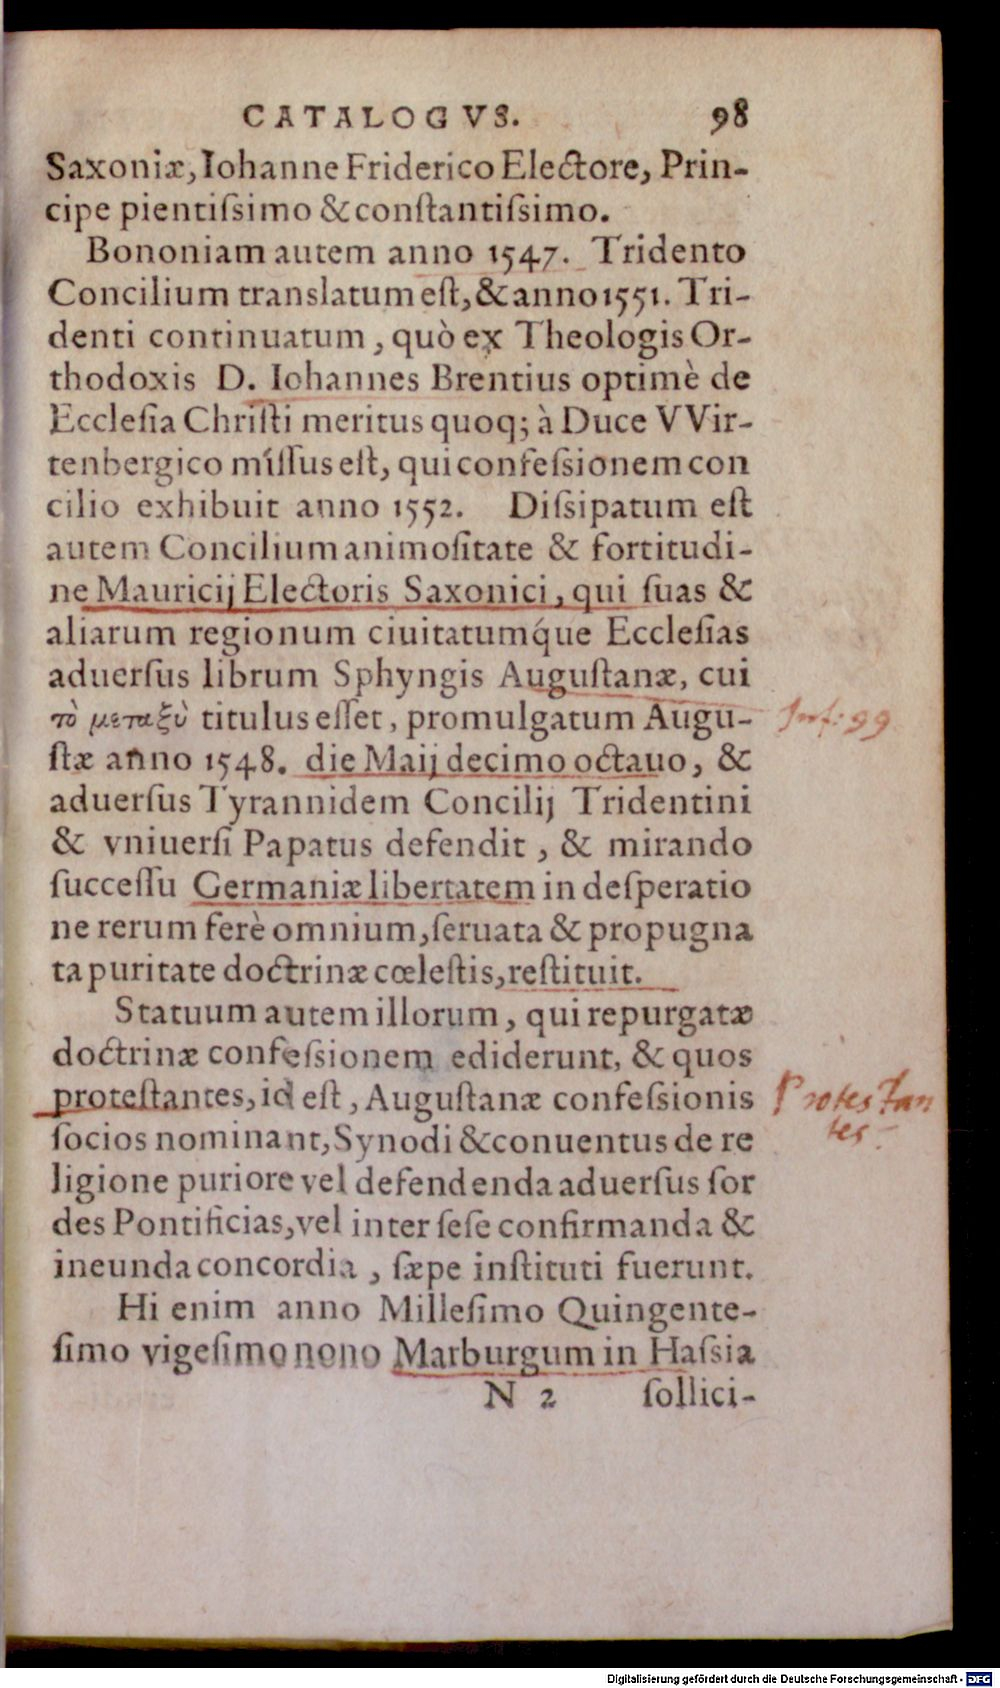 CATALOGVS. 98
Saxoniæ, Iohanne Friderico Electore, Prin-
cipe pientiſsimo & conſtantiſsimo.
Bononiam autem anno 1547. Tridento
Concilium translatum eſt, & anno 1551. Tri-
denti continuatum, quò ex Theologis Or-
thodoxis D. Iohannes Brentius optimè de
Eccleſia Chriſti meritus quoq; à Duce VVir-
tenbergico miſſus eſt, qui confeſsionem con
cilio exhibuit anno 1552. Diſsipatum eſt
autem Concilium animoſitate & fortitudi-
ne Mauricij Electoris Saxonici, qui ſuas &
aliarum regionum ciuitatumq́ue Eccleſias
aduerſus librum Sphyngis Auguſtanæ, cui
τὸ μεταξὺ titulus eſſet, promulgatum Augu-
ſtæ anno 1548. die Maij decimo octauo, &
aduerſus Tyrannidem Concilij Tridentini
& vniuerſi Papatus defendit, & mirando
ſucceſſu Germaniæ libertatem in deſperatio
ne rerum ferè omnium, ſeruata & propugna
ta puritate doctrinæ cœleſtis, reſtituit.
Statuum autem illorum, qui repurgatæ
doctrinæ confeſsionem ediderunt, & quos
proteſtantes, id eſt, Auguſtanæ confeſsionis
ſocios nominant, Synodi & conuentus de re
ligione puriore vel defendenda aduerſus ſor
des Pontificias, vel inter ſeſe confirmanda &
ineunda concordia, ſæpe inſtituti fuerunt.
Hi enim anno Milleſimo Quingente-
ſimo vigeſimo nono Marburgum in Haſsia
N 2 ſollici-
Inf: 99
Protestan
tes
Digitalisierung gefördert durch die Deutsche Forschungsgemeinschaft - DFG